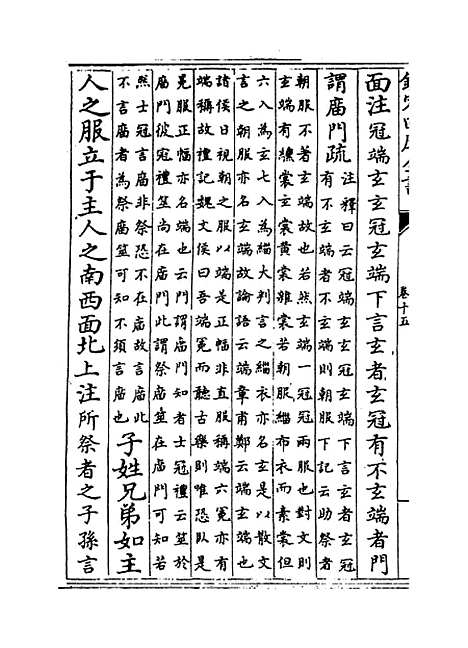 欽定四庫全書
卷十五
面注冠端玄玄冠玄端下言玄者玄冠有不玄端者門
謂庿門疏
注釋曰云冠端玄玄冠玄端下言玄者玄冠
有不玄端者不玄端則朝服下記云助祭者
朝服不著玄端故也若然玄端一冠冠兩服也對文則
玄端有纁裳玄裳黃裳雜裳若朝服緇布衣而素裳但
六入為玄七入為緇大判言之緇衣亦名玄是以散文
言之朝服亦名玄端故論語云端章甫鄭云端玄端也
諸侯日視朝之服以端是正幅非直服稱端六冕亦有
端稱故禮記魏文侯曰吾端冕而聽古樂則唯恐臥是
冕服正幅亦名端也云門謂庿門知者士冠禮云筮於
庿門彼冠禮筮尚在庿門此謂祭庿筮在庿門可知若
然士冠言庿非祭恐不在庿故言庿此
不言庿者為祭庿筮可知不須言庿也
子姓兄弟如主
人之服立于主人之南西面北上注所祭者之子孫言